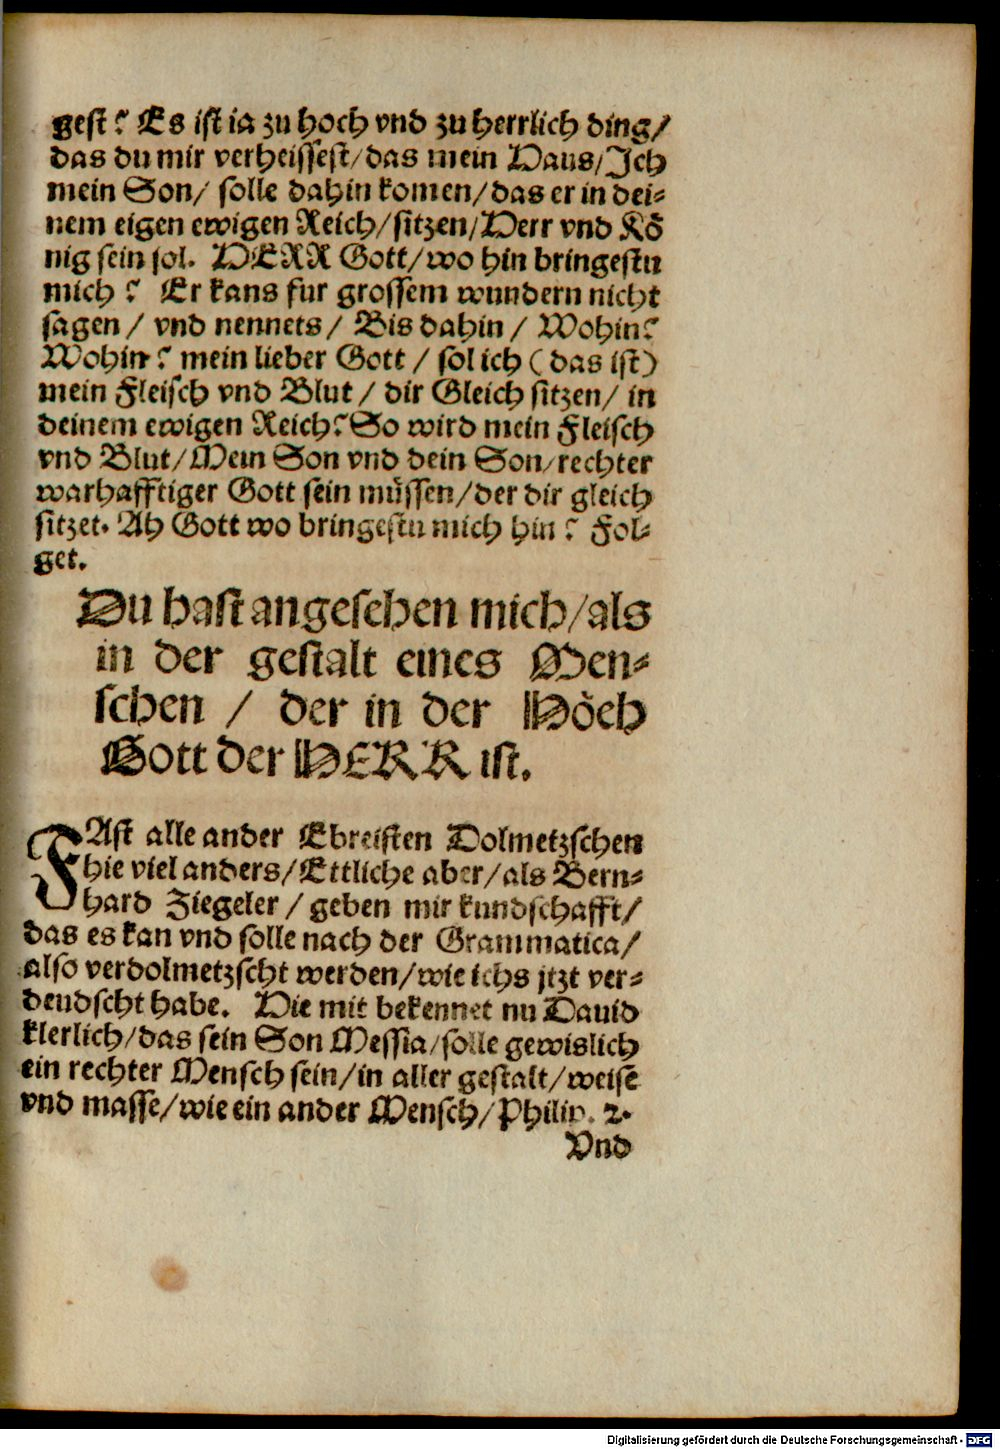 gest? Es ist ia zu hoch vnd zu herrlich ding/
das du mir verheissest/das mein Haus/Jch
mein Son/ solle dahin komen/das er in dei-
nem eigen ewigen Reich/sitzen/Herr vnd Kö
nig sein sol. HERR Gott/wo hin bringestu
mich? Er kans fur grossem wundern nicht
sagen/ vnd nennets/ Bis dahin/ Wohin?
Wohin? mein lieber Gott/ sol ich (das ist)
mein Fleisch vnd Blut/ dir Gleich sitzen/ in
deinem ewigen Reich? So wird mein Fleisch
vnd Blut/Mein Son vnd dein Son/rechter
warhafftiger Gott sein müssen/der dir gleich
sitzet. Ah Gott wo bringestu mich hin? Fol-
get.
Du hast angesehen mich/als
in der gestalt eines Men-
schen/ der in der Höeh
Gott der HERR ist.
FAst alle ander Ebreisten Dolmetzschen
hie viel anders/Ettliche aber/als Bern-
hard Ziegeler/ geben mir kundschafft/
das es kan vnd solle nach der Grammatica/
also verdolmetzscht werden/wie ichs jtzt ver-
deudscht habe. Hie mit bekennet nu Dauid
klerlich/das sein Son Messia/solle gewislich
ein rechter Mensch sein/in aller gestalt/weise
vnd masse/wie ein ander Mensch/Philip. 2.
Vnd
Digitalisierung gefördert durch die Deutsche Forschungsgemeinschaft - DFG